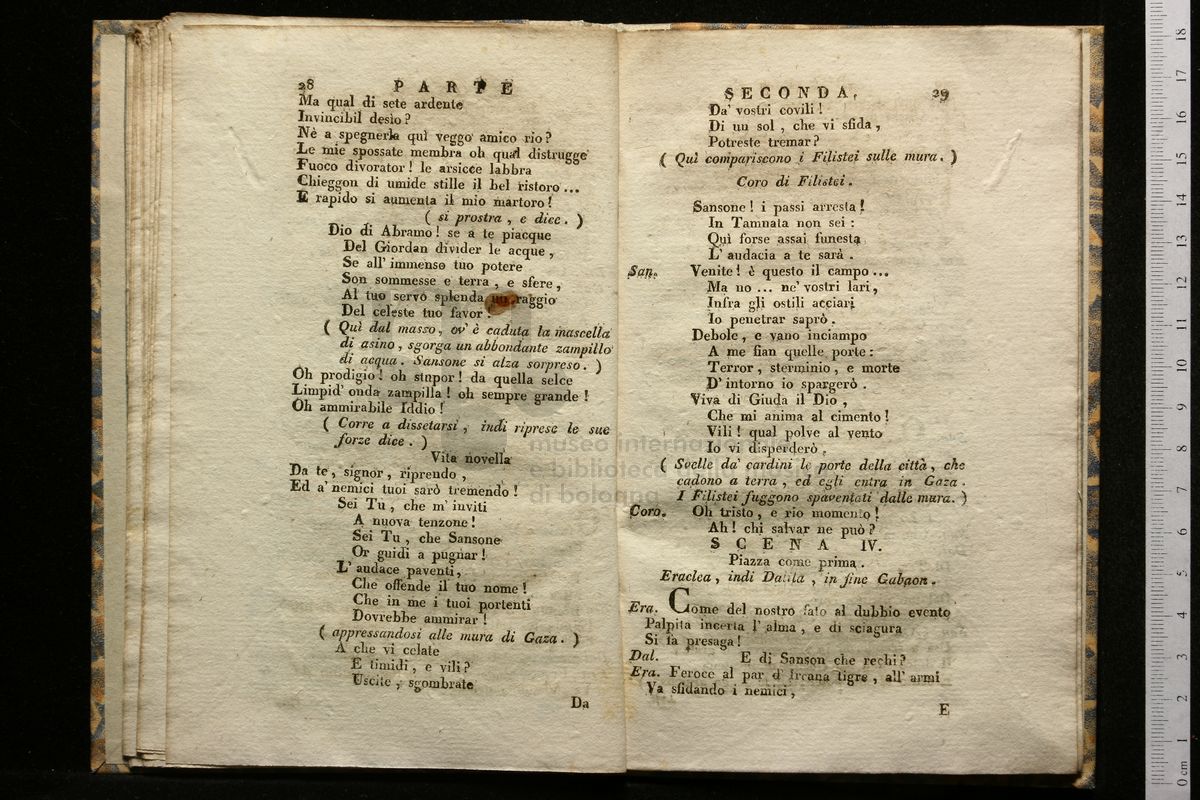 28 PARTE
Ma qual di sete ardente
Invincibil desìo?
Nè a spegnerla quì veggo amico rio?
Le mie spossate membra oh qual distrugge
Fuoco divorator! le arsicce labbra
Chieggon di umide stille il bel ristoro...
E rapido si aumenta il mio martoro!
( si prostra, e dice. )
Dio di Abramo! se a te piacque
Del Giordan divider le acque,
Se all' immenso tuo potere
Son sommesse e terra, e sfere,
Al tuo servo splenda un raggio
Del celeste tuo favor!
( Quì dal masso, ov' è caduta la mascella
di asino, sgorga un abbondante zampillo
di acqua. Sansone si alza sorpreso. )
Oh prodigio! oh stupor! da quella selce
Limpid' onda zampilla! oh sempre grande!
Oh ammirabile Iddio!
( Corre a dissetarsi, indi riprese le sue
forze dice. )
Vita novella
Da te, signor, riprendo,
Ed a' nemici tuoi sarò tremendo!
Sei Tu, che m' inviti
A nuova tenzone!
Sei Tu, che Sansone
Or guidi a pugnar!
L' audace paventi,
Che offende il tuo nome!
Che in me i tuoi portenti
Dovrebbe ammirar!
( appressandosi alle mura di Gaza. )
A che vi celate
E timidi, e vili?
Uscite, sgombrate
Da
SECONDA. 29
Da' vostri covili!
Di un sol, che vi sfida,
Potreste tremar?
( Quì compariscono i Filistei sulle mura. )
Coro di Filistei.
Sansone! i passi arresta!
In Tamnata non sei:
Quì forse assai funesta
L' audacia a te sarà.
San. Venite! è questo il campo...
Ma no... ne' vostri lari,
Infra gli ostili acciari
Io penetrar saprò.
Debole, e vano inciampo
A me fian quelle porte:
Terror, sterminio, e morte
D' intorno io spargerò.
Viva di Giuda il Dio,
Che mi anima al cimento!
Vili! qual polve al vento
Io vi disperderò.
( Svelle da' cardini le porte della città, che
cadono a terra, ed egli entra in Gaza.
I Filistei fuggono spaventati dalle mura. )
Coro. Oh tristo, e rio momento!
Ah! chi salvar ne può?
SCENA IV.
Piazza come prima.
Eraclea, indi Dalila, in fine Gabaon.
Era. Come del nostro fato al dubbio evento
Palpita incerta l' alma, e di sciagura
Si fa presaga!
Dal. E di Sanson che rechi?
Era. Feroce al par d' Ircana tigre, all' armi
Va sfidando i nemici,
E
museo internazionale
e biblioteca della musica
di bologna
0 cm 1 2 3 4 5 6 7 8 9 10 11 12 13 14 15 16 17 18